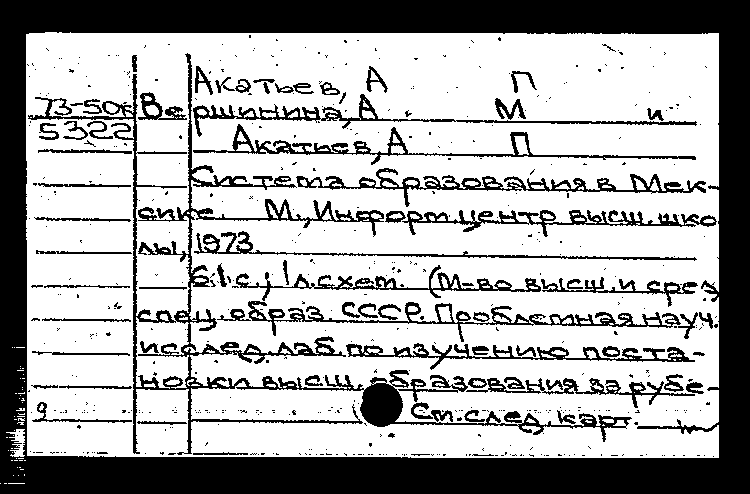 Акатьев, А П
73-50 Вершинина, А М и
5322 Акатьев, А П
Система образования в Мек-
сике. М., Информ. центр высш. шко
лы, 1973.
61с.; 1 л. схем. (М-во высш. и сред
спец. образ. СССР. Проблемная науч.
исслед. лаб. по изучению поста-
новки высш. образования за рубе-
9 См. след. карт.